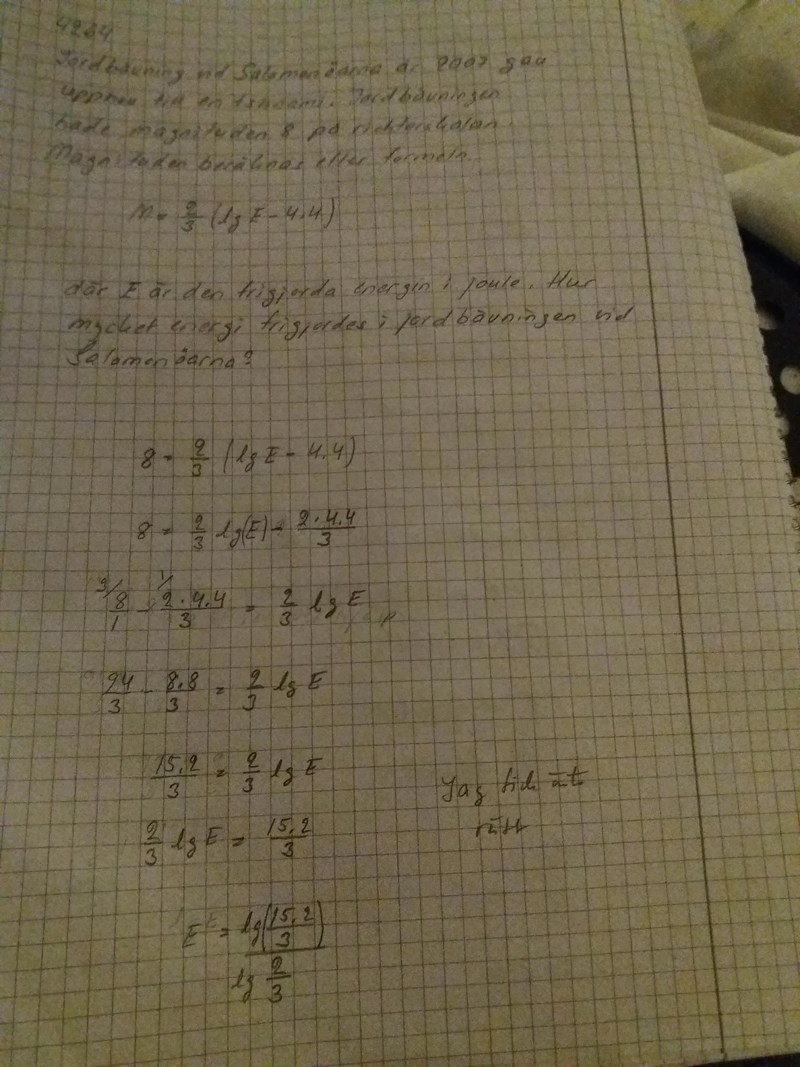 4234
Jordbävning vid Salomonöarna år 2007 gav
upphov till en tsunami. Jordbävningen
hade magnituden 8 på richterskalan.
Magnituden beräknas efter formeln
M = 2/3 (lg E - 4.4)
där E är den frigjorda energin i joule. Hur
mycket energi frigjordes i jordbävningen vid
Salomonöarna?
8 = 2/3 (lg E - 4.4)
8 = 2/3 lg(E) - 2·4.4/3
3/ 8/1 - 1/ 2·4.4/3 = 2/3 lg E
24/3 - 8.8/3 = 2/3 lg E
15.2/3 = 2/3 lg E
2/3 lg E = 15.2/3
E = lg(15.2/3) / lg 2/3
Jag fick